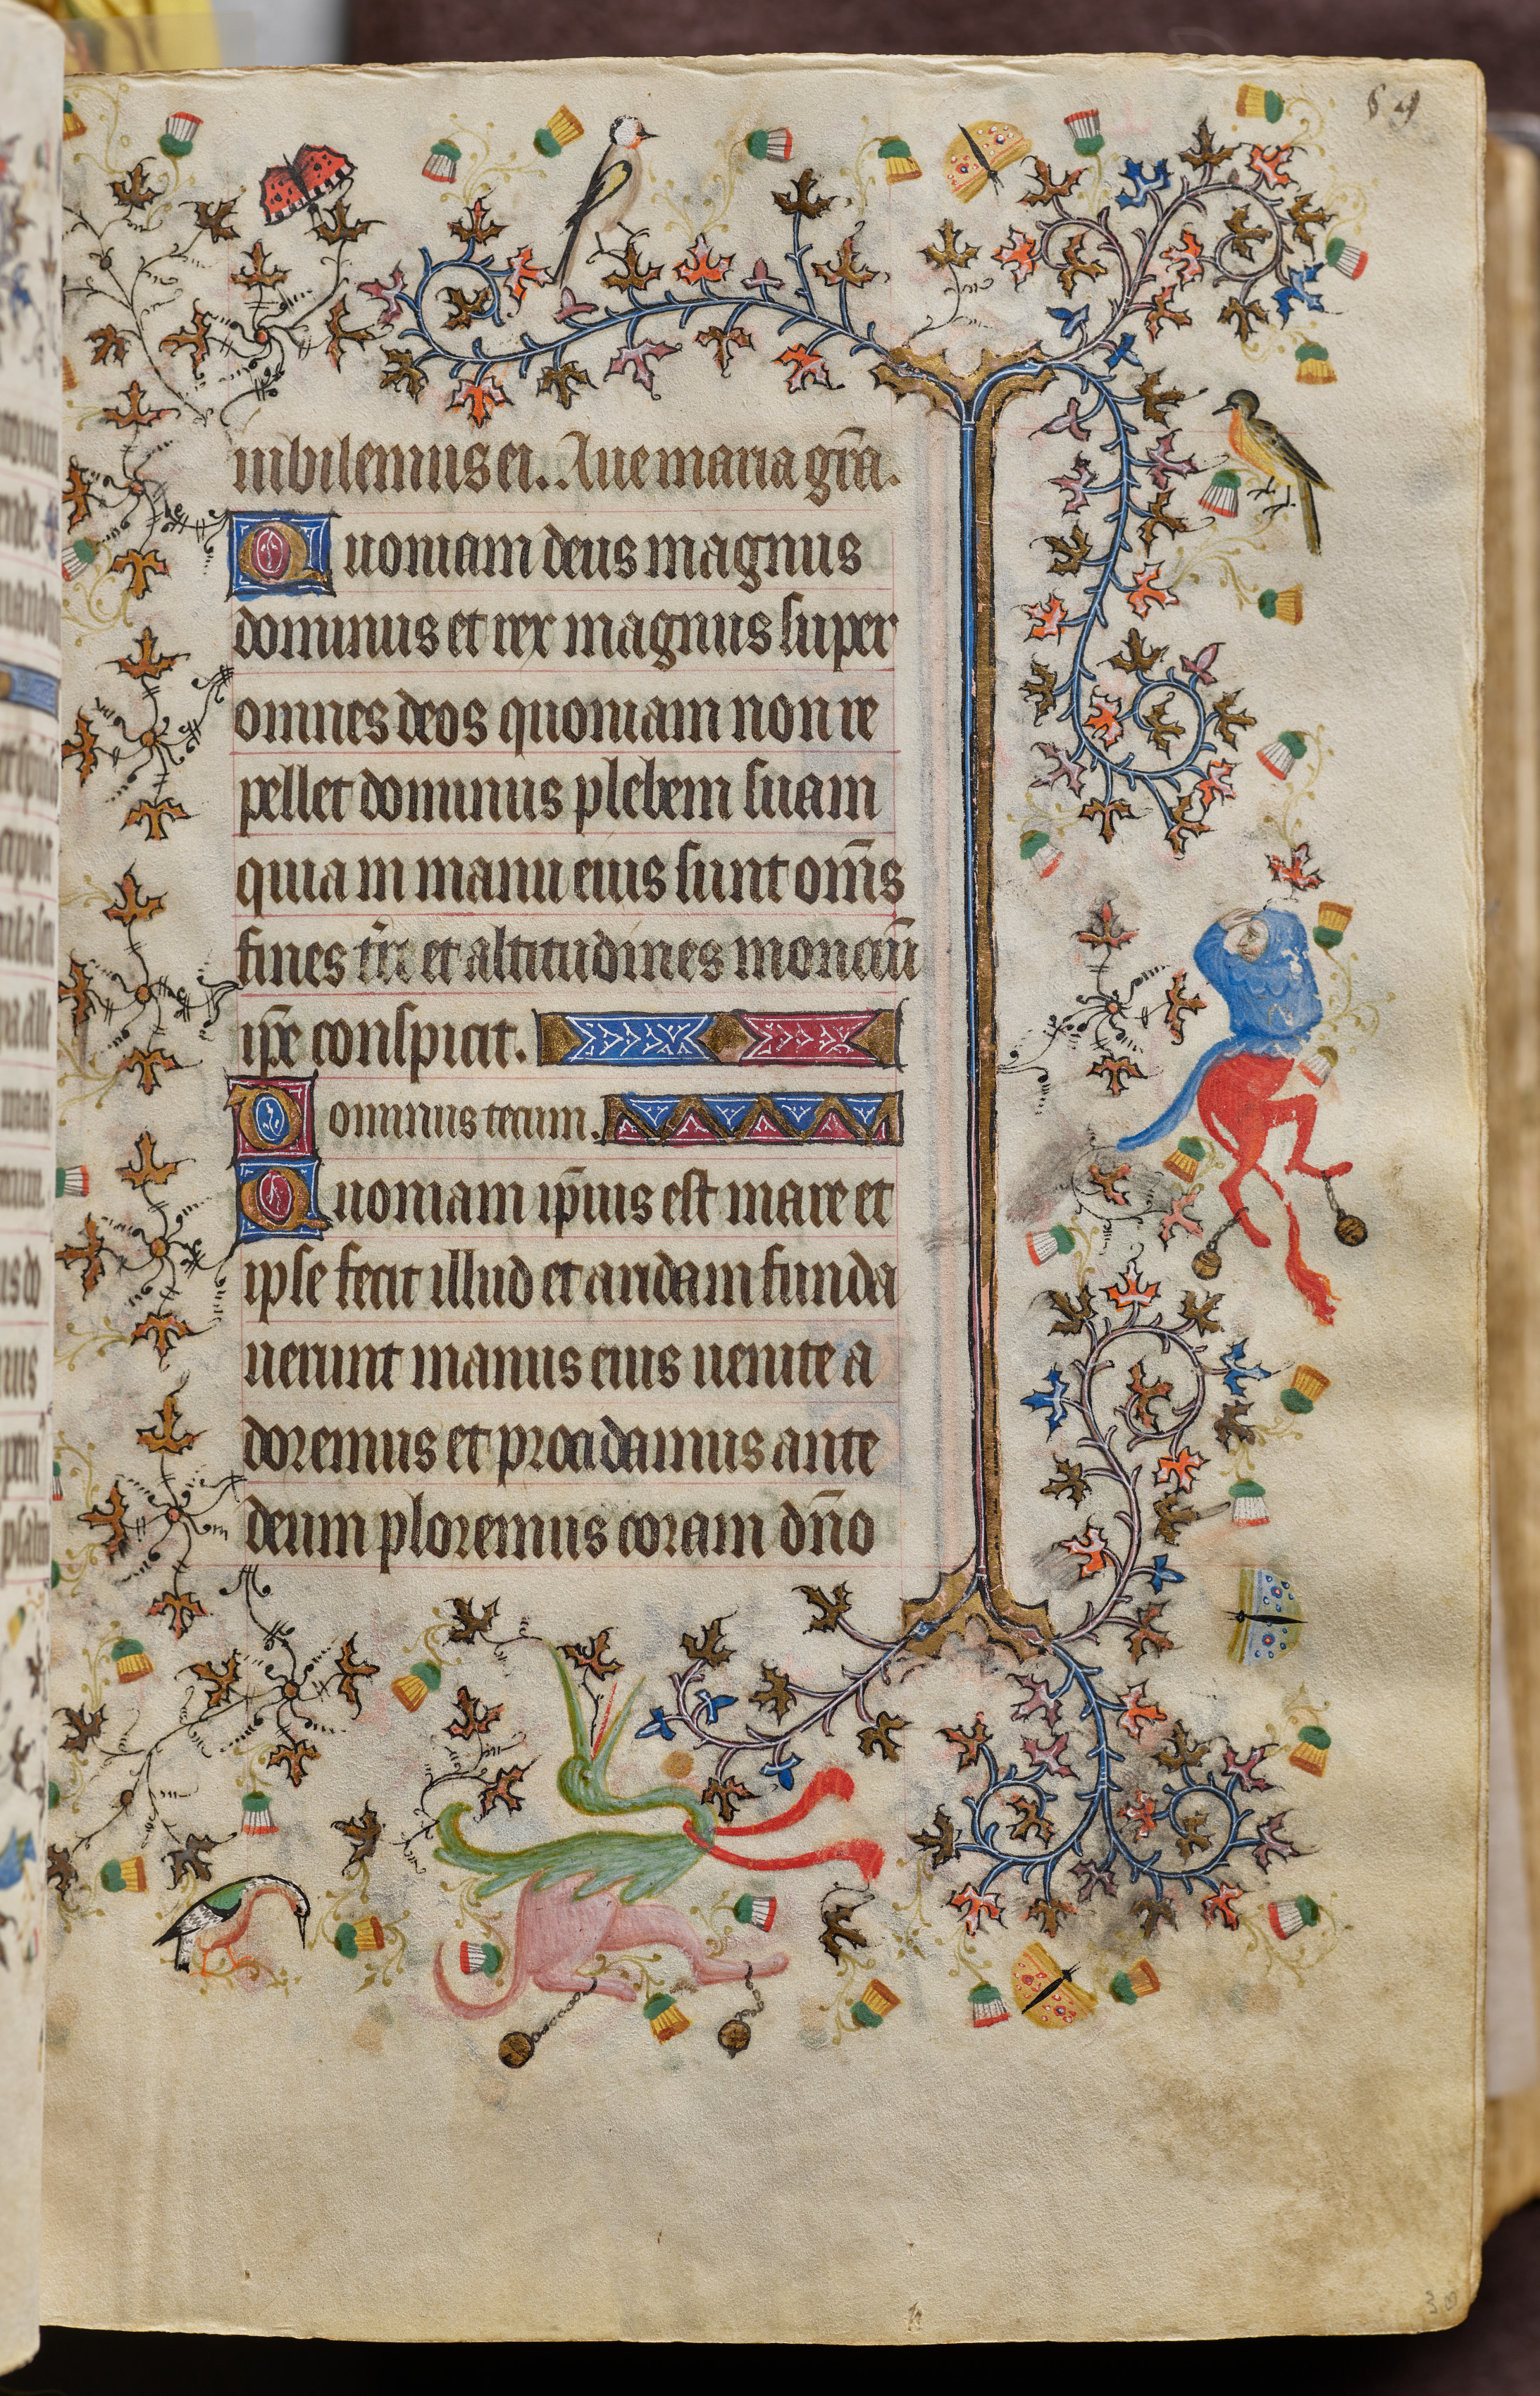 59
iubilemus ei. Aue maria gr̄a.
Quoniam deus magnus
dominus et rex magnus super
omnes deos quoniam non re
pellet dominus plebem suam
quia in manu eius sunt om̄s
fines tr̄e et altitudines monciū
ip̄e conspicit.
Dominus tecum.
Quoniam ip̄ius est mare et
ipse fecit illud et aridam funda
uerunt manus eius uenite a
doremus et procidamus ante
deum ploremus coram dn̄o
30